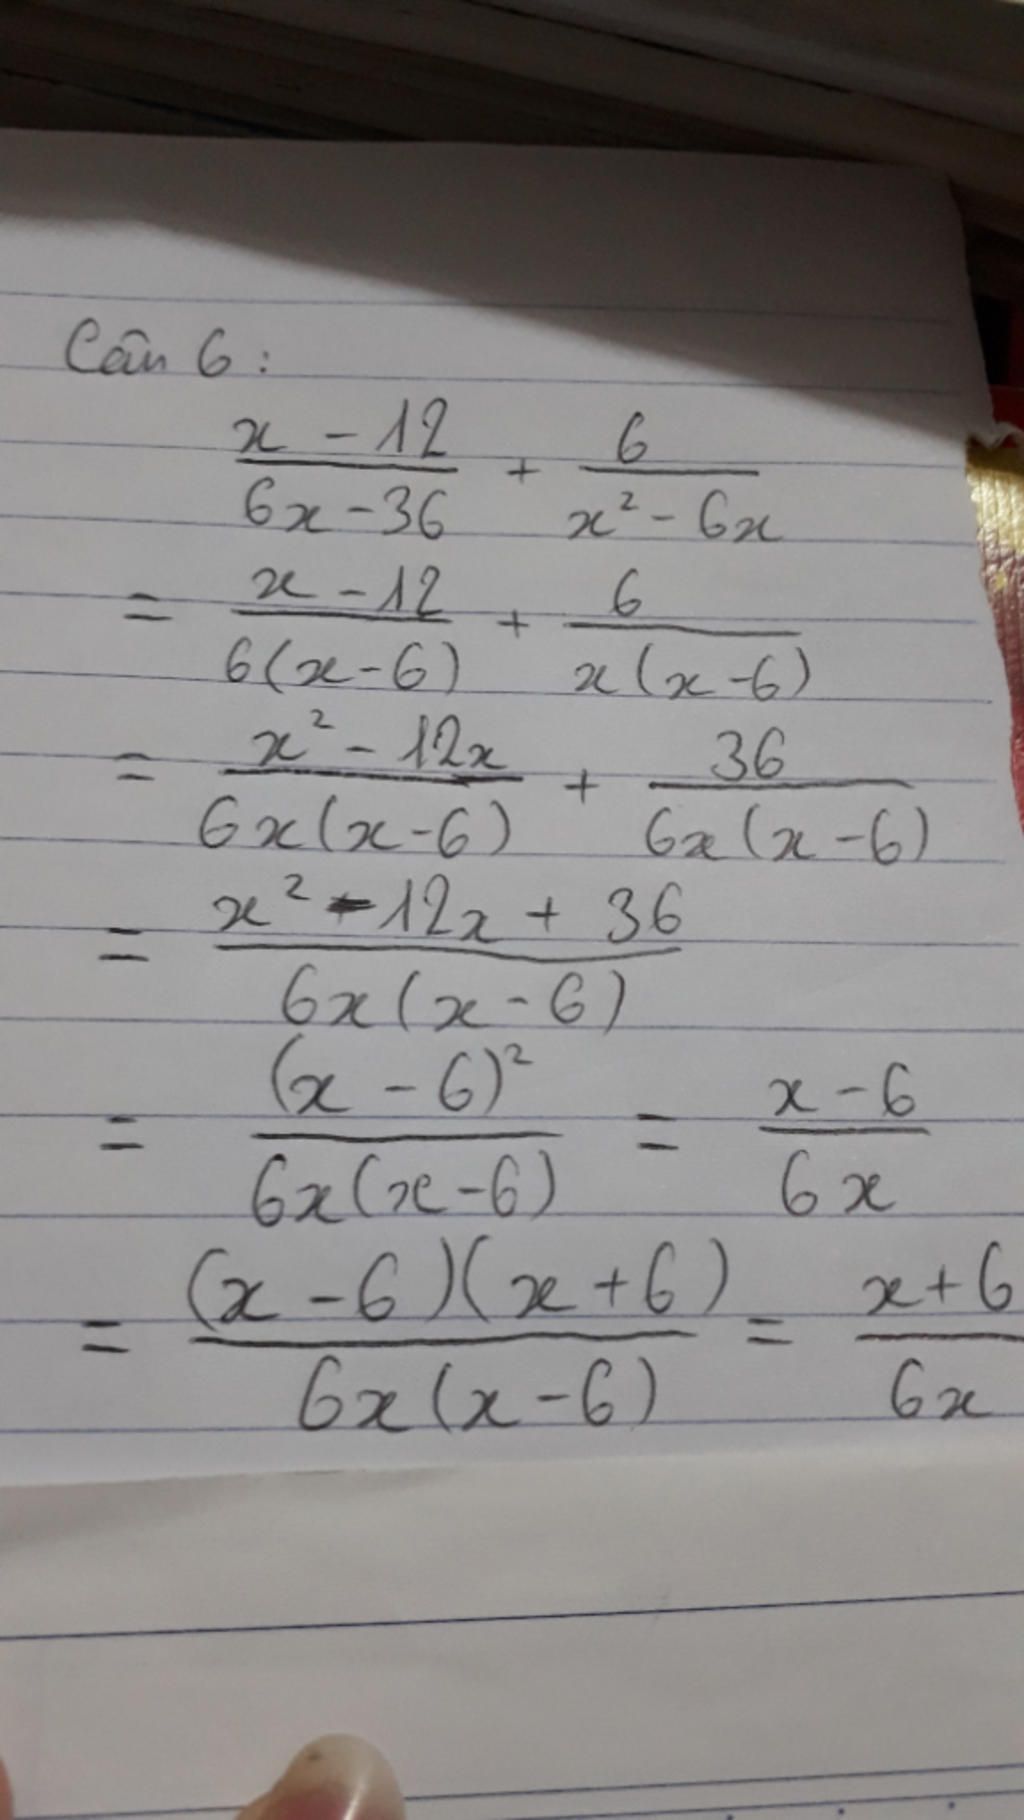 Câu 6 :
x - 12 / 6x - 36 + 6 / x² - 6x
= x - 12 / 6(x - 6) + 6 / x(x - 6)
= x² - 12x / 6x(x - 6) + 36 / 6x(x - 6)
= x² - 12x + 36 / 6x(x - 6)
= (x - 6)² / 6x(x - 6) = x - 6 / 6x
= (x - 6)(x + 6) / 6x(x - 6) = x + 6 / 6x